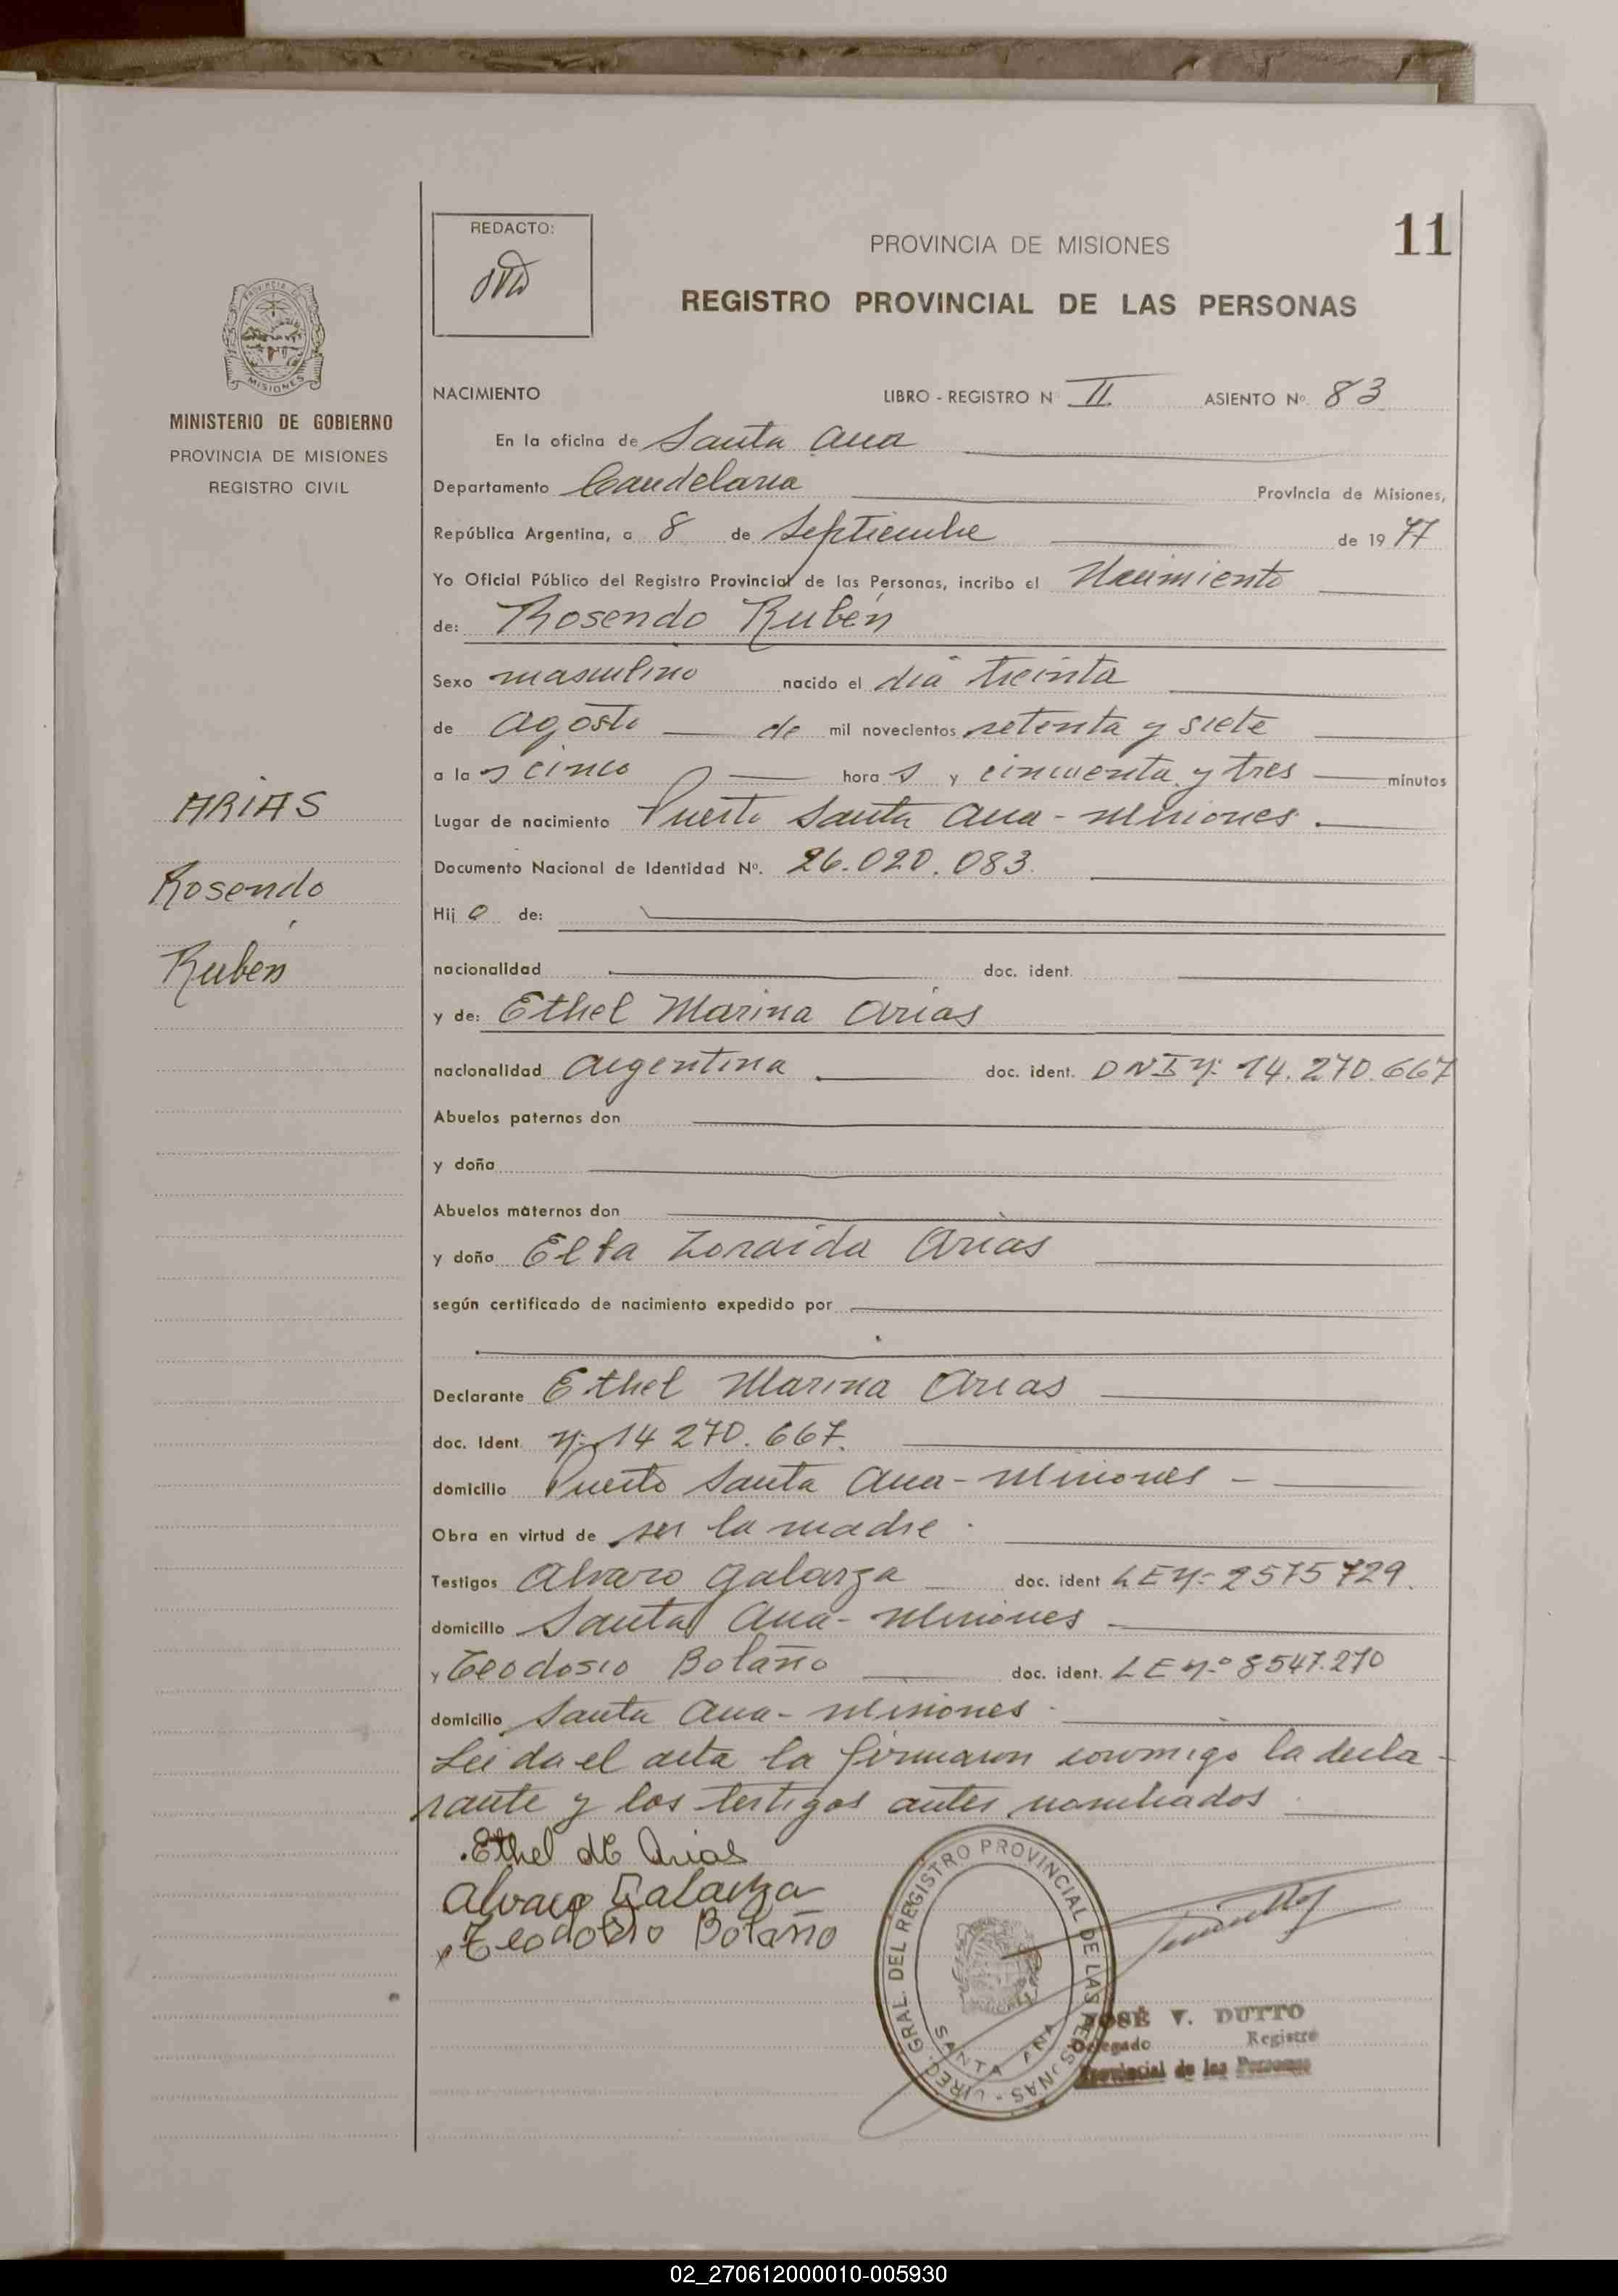 11
REDACTO:
PROVINCIA DE MISIONES
REGISTRO PROVINCIAL DE LAS PERSONAS
PROVINCIA DE
MISIONES
MINISTERIO DE GOBIERNO
PROVINCIA DE MISIONES
REGISTRO CIVIL
ARIAS
Rosendo
Rubén
NACIMIENTO LIBRO - REGISTRO N II ASIENTO Nº. 83
En la oficina de Santa Ana
Departamento Candelaria Provincia de Misiones,
República Argentina, a 8 de Septiembre de 1977
Yo Oficial Público del Registro Provincial de las Personas, incribo el Nacimiento
de: Rosendo Rubén
Sexo masculino nacido el día treinta
de agosto de mil novecientos setenta y siete
a las cinco horas y cincuenta y tres minutos
Lugar de nacimiento Puerto Santa Ana - Misiones.
Documento Nacional de Identidad Nº. 26.020.083.
Hijo de:
nacionalidad doc. ident.
y de: Ethel Marina Arias
nacionalidad Argentina doc. ident. DNI Nº 14.270.667
Abuelos paternos don
y doña
Abuelos maternos don
y doña Zoraida Arias
según certificado de nacimiento expedido por
Declarante Ethel Marina Arias
doc. Ident. Nº 14 270.667.
domicilio Puerto Santa Ana - Misiones -
Obra en virtud de ser la madre.
Testigos Alvaro Galarza doc. ident LE Nº 2575729.
domicilio Santa Ana - Misiones
y Teodosio Bolaño doc. ident. LE Nº 8547.270
domicilio Santa Ana - Misiones.
Leida el acta la firmaron conmigo la decla-
rante y los testigos antes nombrados
Ethel M Arias
Alvaro Galarza
Teodosio Bolaño
DIREC. GRAL. DEL REGISTRO PROVINCIAL DE LAS PERSONAS -
SANTA ANA
JOSÉ V. DUTTO
Delegado Registro
Provincial de las Personas
02_270612000010-005930